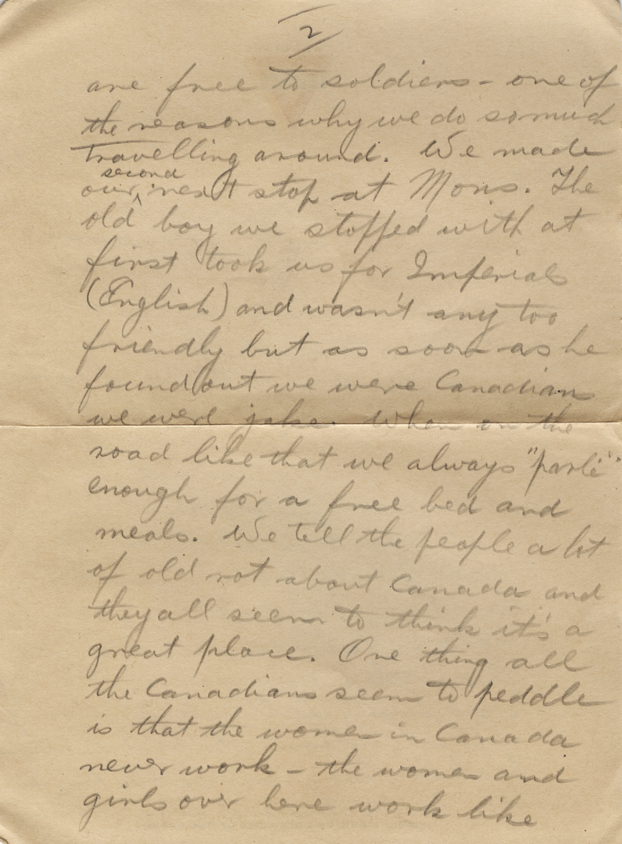 2
are free to soldiers - one of
the reasons why we do so much
travelling around. We made
second
our next stop at Mons. The
old boy we stopped with at
first took us for Imperials
(English) and wasn't any too
friendly but as soon as he
found out we were Canadians
we were jake. When on the
road like that we always "parlé"
enough for a free bed and
meals. We tell the people a lot
of old rot about Canada and
they all seem to think it's a
great place. One thing all
the Canadians seem to peddle
is that the women in Canada
never work - the women and
girls over here work like